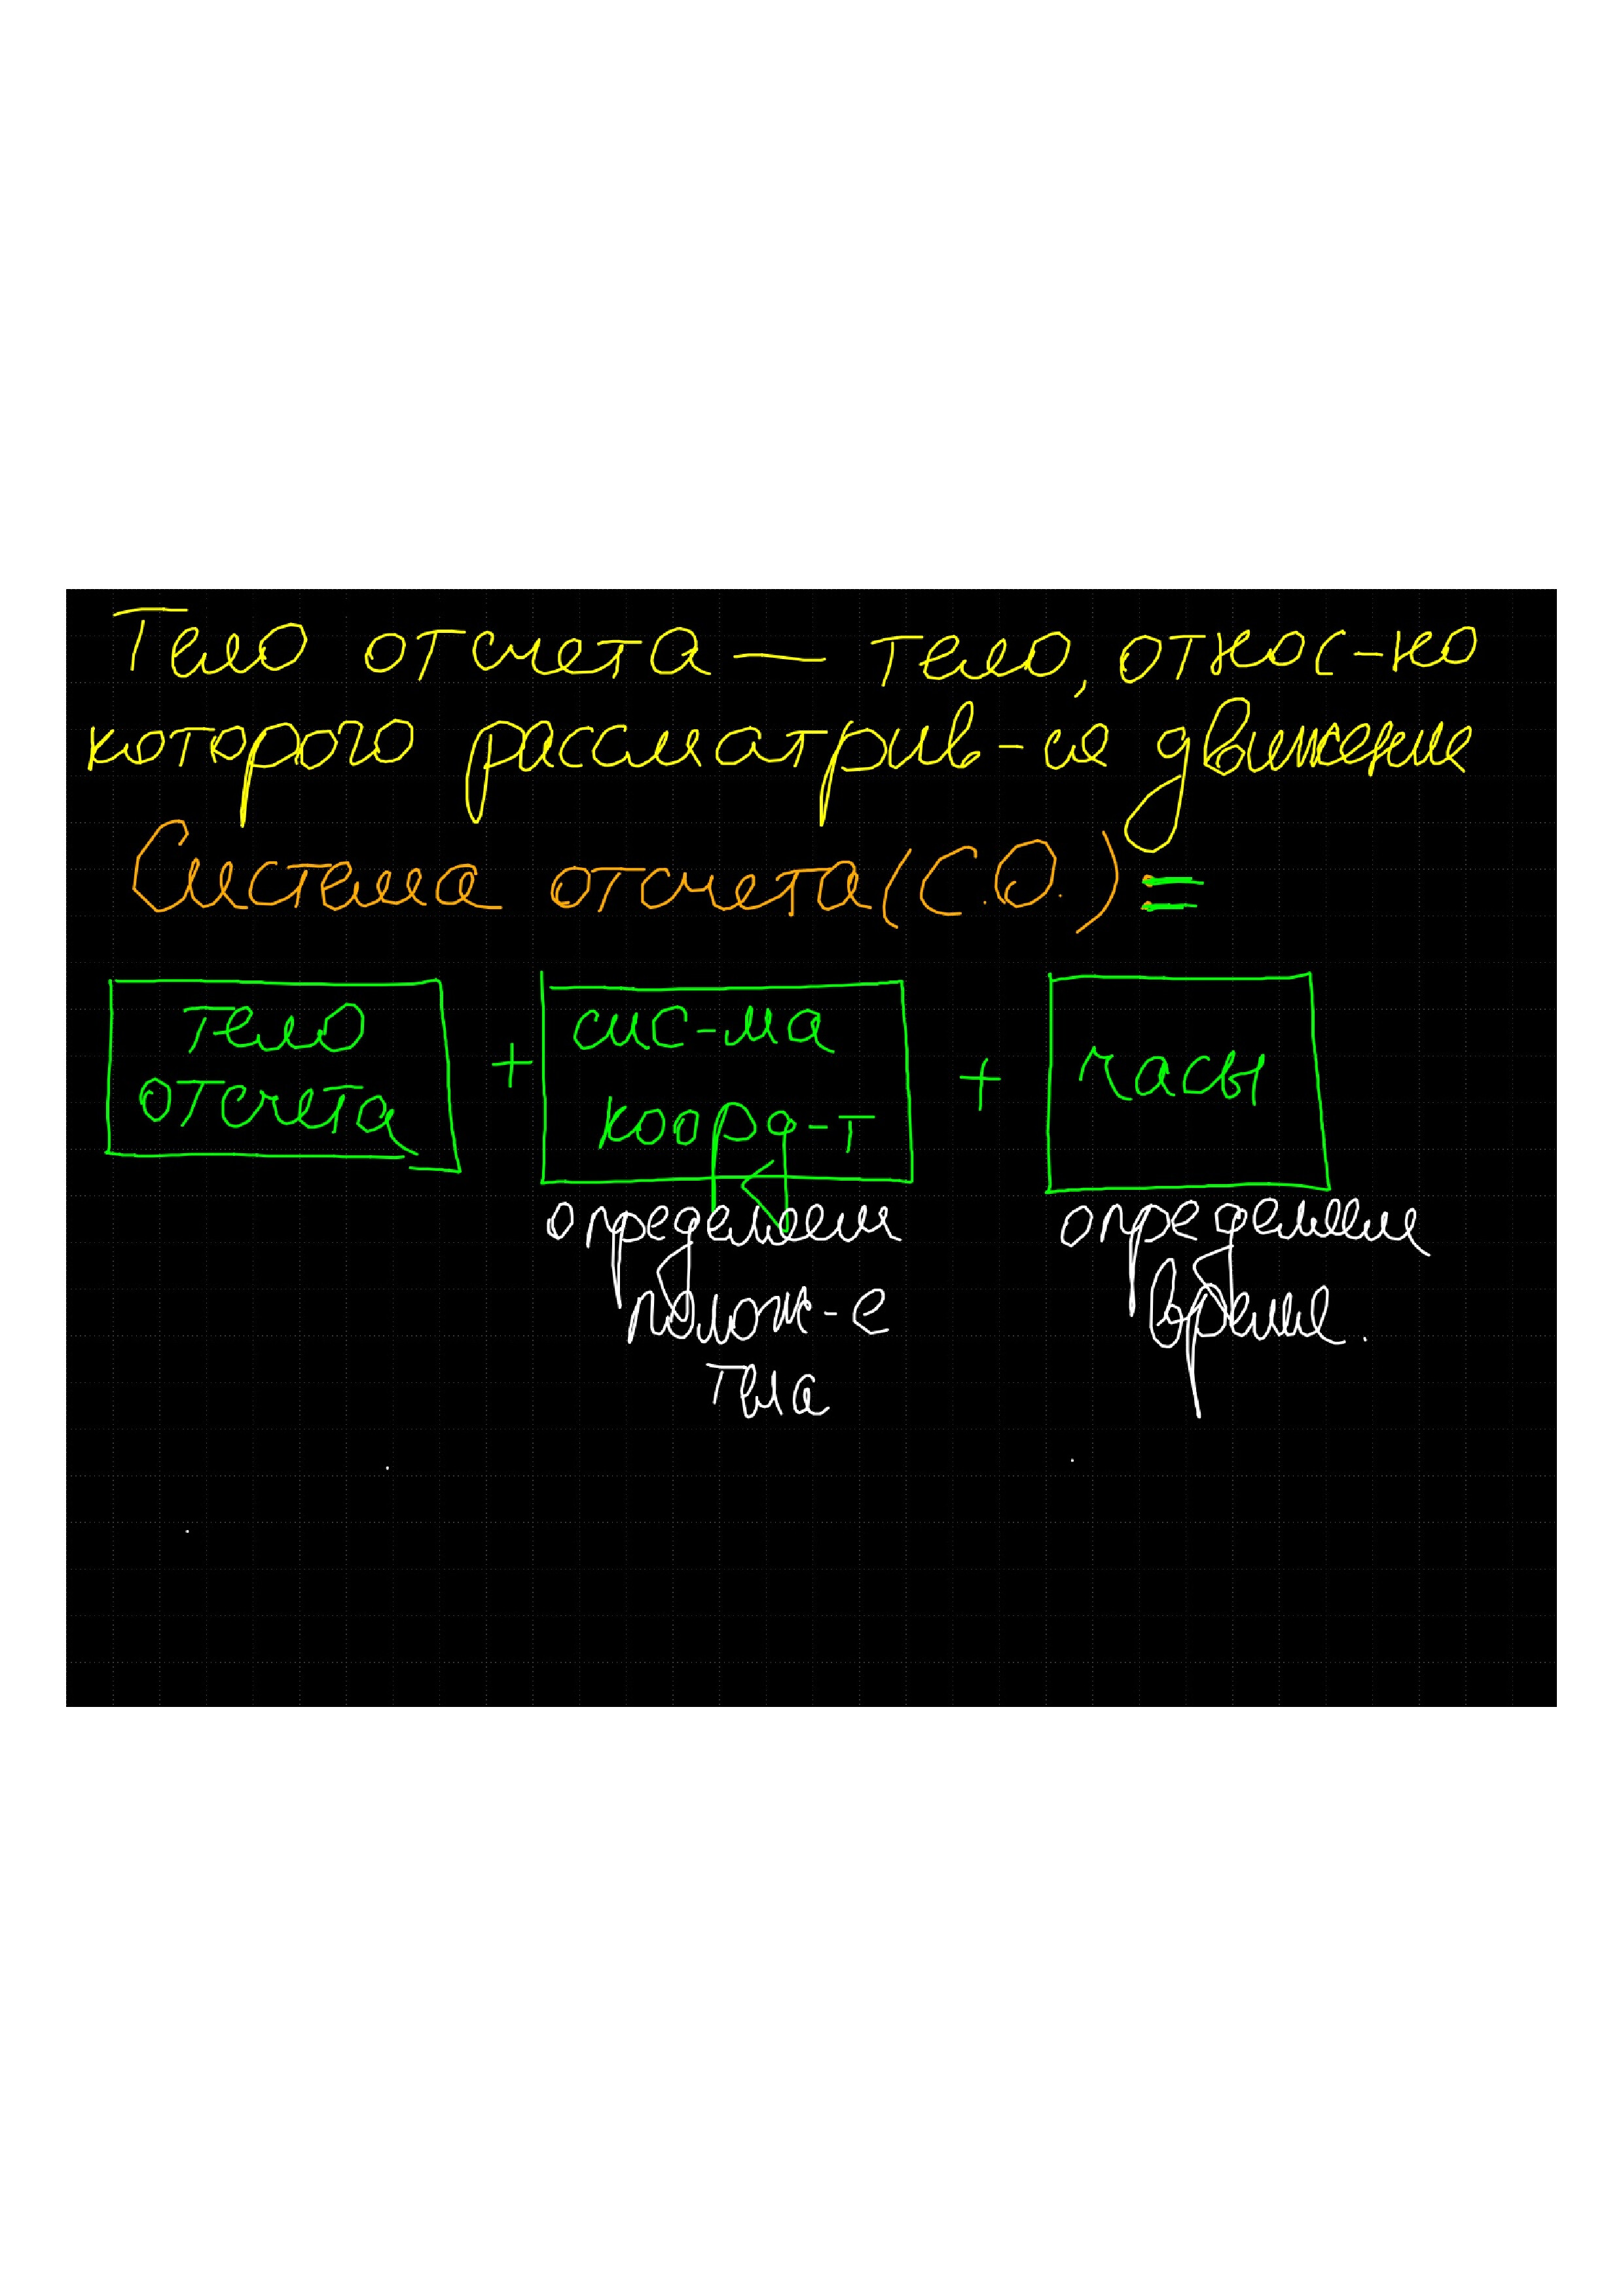 Тело отсчета — тело, относ-но
которого рассматрив-ся движение
Система отсчета (С.О.) =
тело
отсчета
+
сис-ма
коорд-т
+
часы
определяем
полож-е
тела
определяем
время.